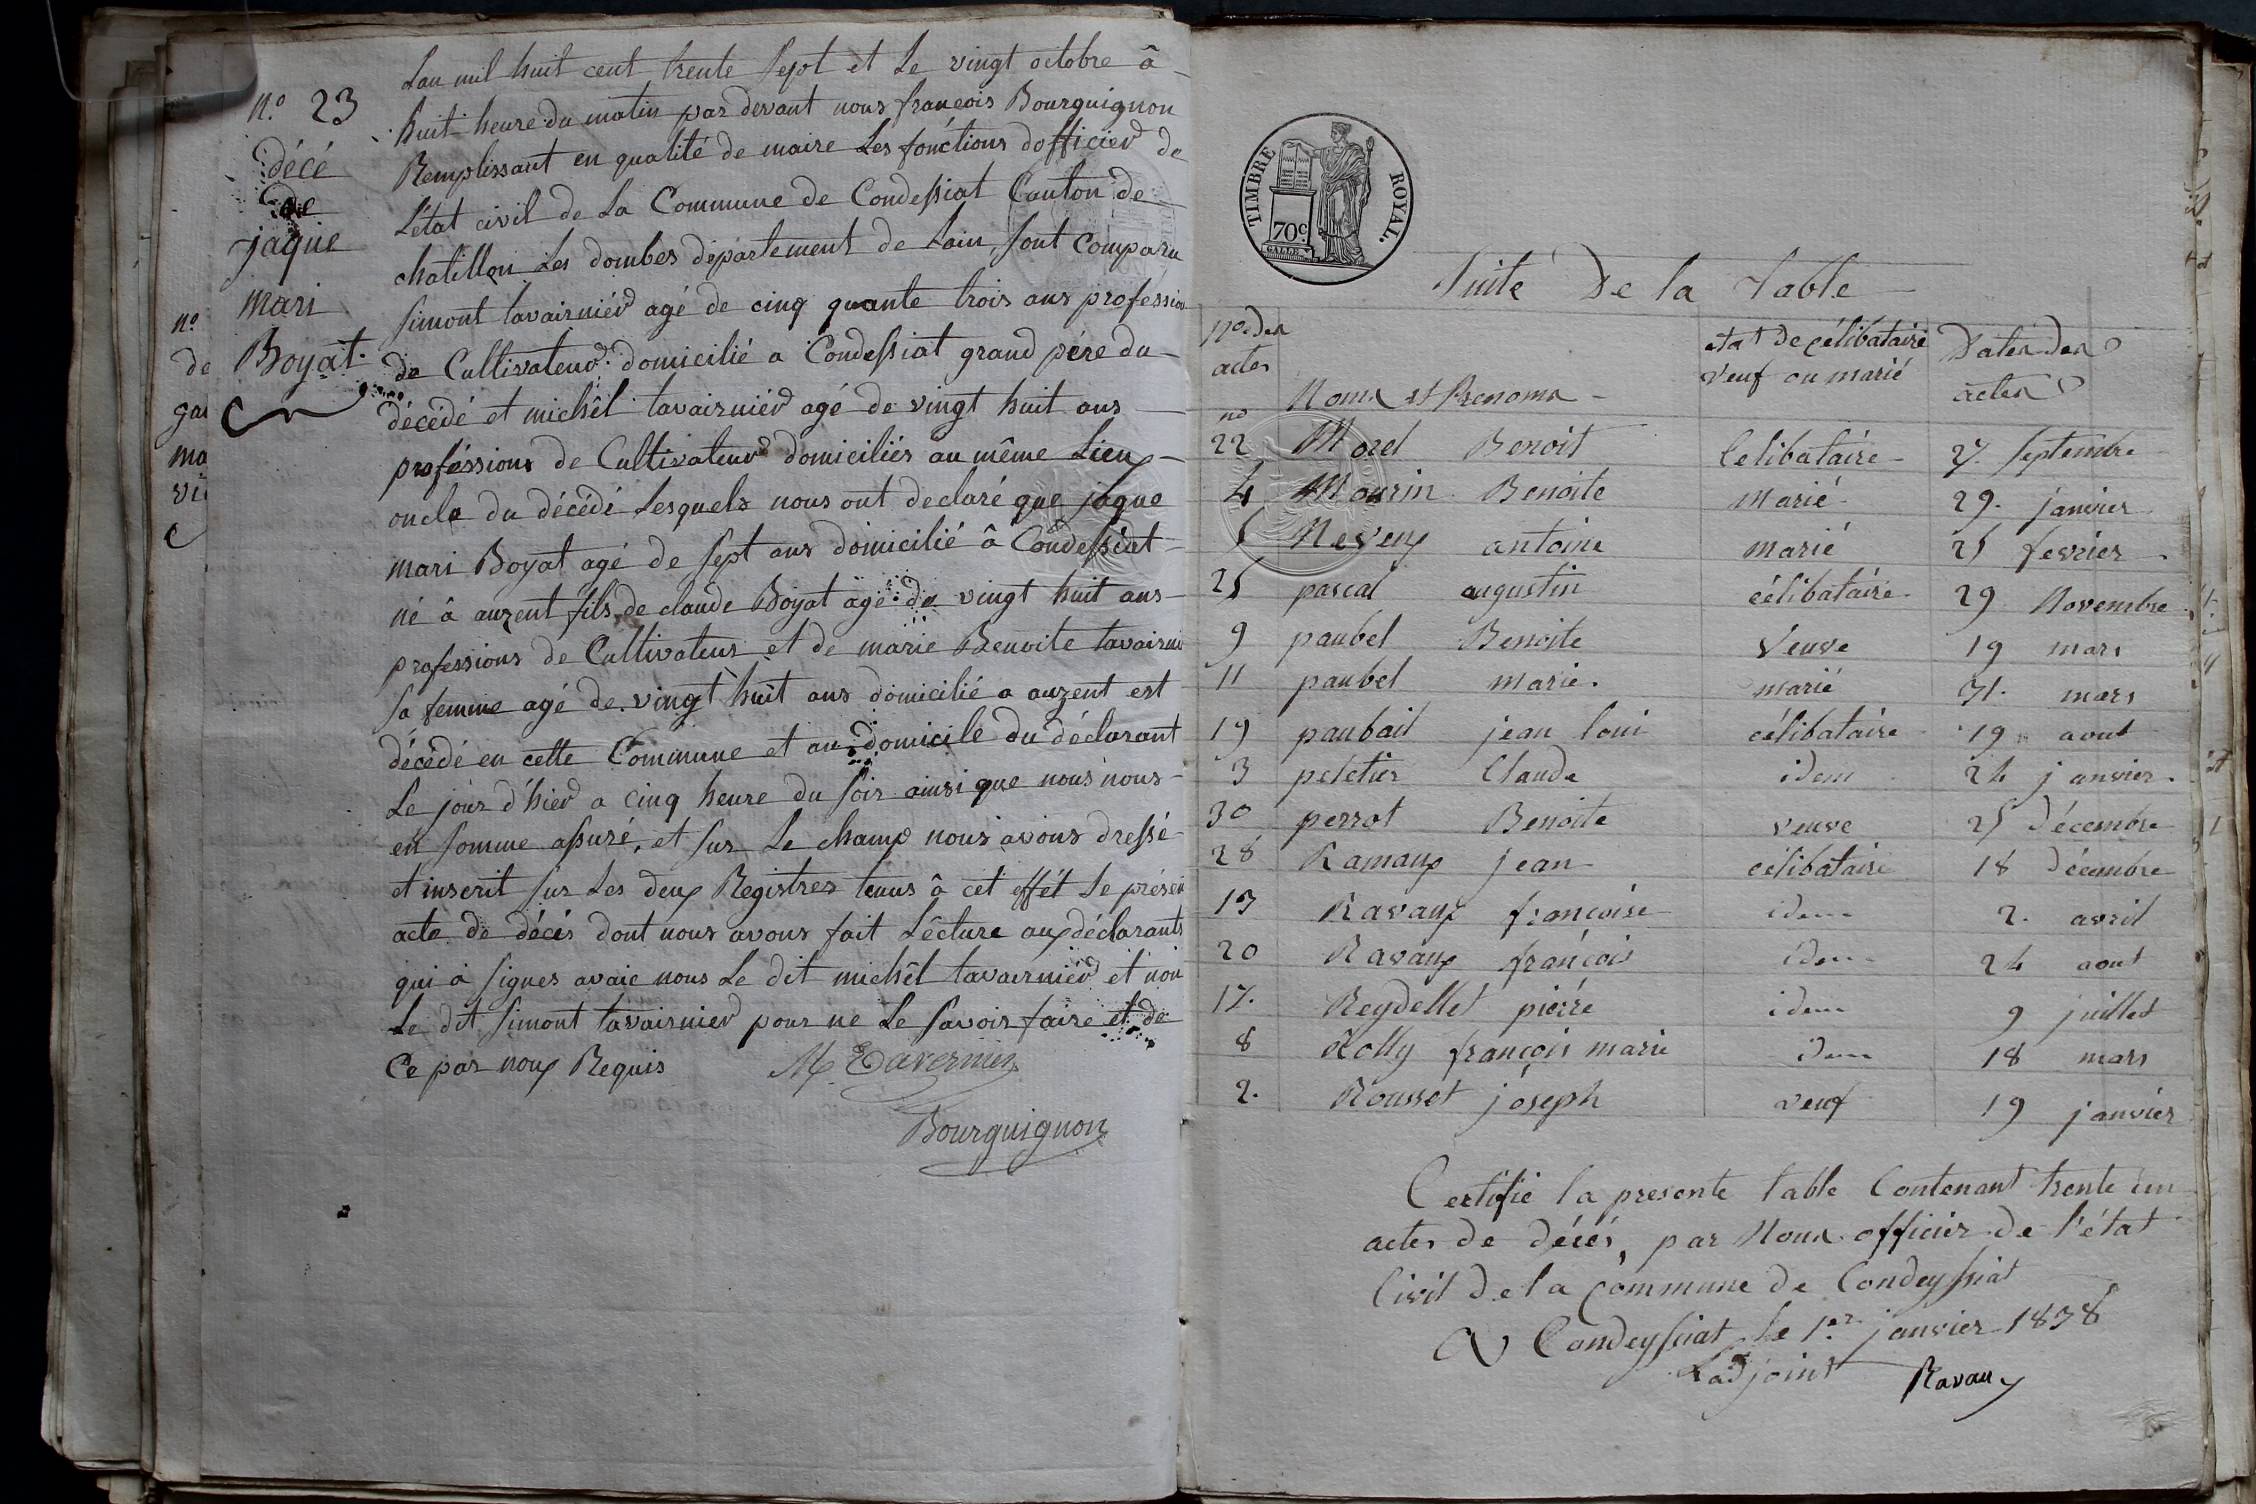 n.o 23
décé
de
jaque
mari
Boyat.
n.o
de
ga
ma
vi
Lan mil huit cent trente Sept et Le vingt octobre â
huit heure du matin par devant nous francois Bourguignon
Remplissant en qualité de maire Les fonctions dofficier de
Létat civil de La Commune de Condessiat Canton de
chatillon Les dombes département de Lain, sont Comparu
simont tavairniér agé de cinq quante trois ans profession
de Cultivateur domicilié a Condessiat grand pére du
décédé et michêl tavairniér agé de vingt huit ans
proféssions de Cultivateur domiciliés au même Lieu
oncle du décédé Lesquels nous ont declaré que jaque
mari Boyat agé de sept ans domicilié â Condessiat
né â auzent fils de claude Boyat agé de vingt huit ans
professions de Cultivateur et de marie Benoite tavairni
sa femme agé de vingt huit ans domicilié a auzent est
décédé en cette Commune et au domicile du déclarant
Le jour d'hier a cinq heure du soir ainsi que nous nous
en somme assuré, et sur Le champ nous avons dressé
et inscrit sur Les deux Registres tenus â cet effét Le présen
acte de décés dont nous avons fait Lêcture aux déclarants
qui â signes avaic nous Le dit michêl tavairniér et non
Le dit simont tavairnier pour ne Le savoir faire et de
Ce par nous Requis M Tavernier
Bourguignon
TIMBRE ROYAL.
70c.
Suite De la Table
Nos des actes
Noms et Prenoms
etat De célibataire veuf ou marié
Dates des actes
no
22 Morel Benoit Celibataire 27. septembre
4 Mourin Benoite Marié 29. janvier
5 Neveux antoine marié 25 fevrier
25 pascal augustin célibataire 29 Novembre
9 paubel Benoite Veuve 19 mars
11 paubel marie. marié 31. mars
19 paubail jean loui célibataire 19 aout
3 peletier Claude idem 24 janvier.
30 perrot Benoite veuve 25 décembre
28 Ramaux jean célibataire 18 décembre
13 Ravaux françoise idem 2. avril
20 Ravaux françois idem 24 aout
17. Reydellet pierre idem 9 juillet
8 Rolly françois marie idem 18 mars
2. Rousset joseph veuf 19 janvier
Certifié la presente table Contenant trente un
actes de décés, par Nous officier de l'état
Civil de la Commune de Condeyssiat
A Condeyssiat le 1er janvier 1838
Ladjoint Ravaux